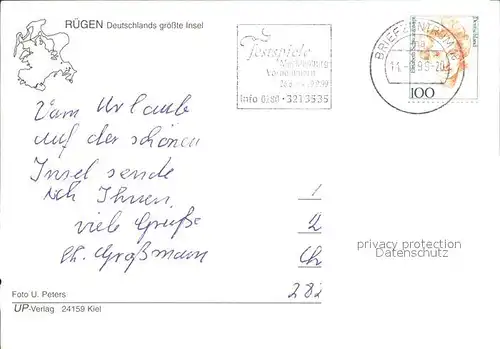 RÜGEN Deutschlands größte Insel
Festspiele
Mecklenburg
Vorpommern
Info 0180 - 3213535
BRIEFZENTRUM
100
Vom Urlaub
auf der schönen
Insel sende
ich Ihnen
viele Grüße
Ch. Großmann
1
2
Ch
282
privacy protection
Datenschutz
Foto U. Peters
UP-Verlag 24159 Kiel